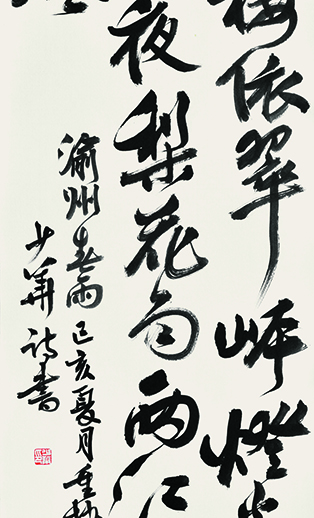 依翠峰燈
夜梨花两江
渝州春雨 己亥夏月重
少華詩書